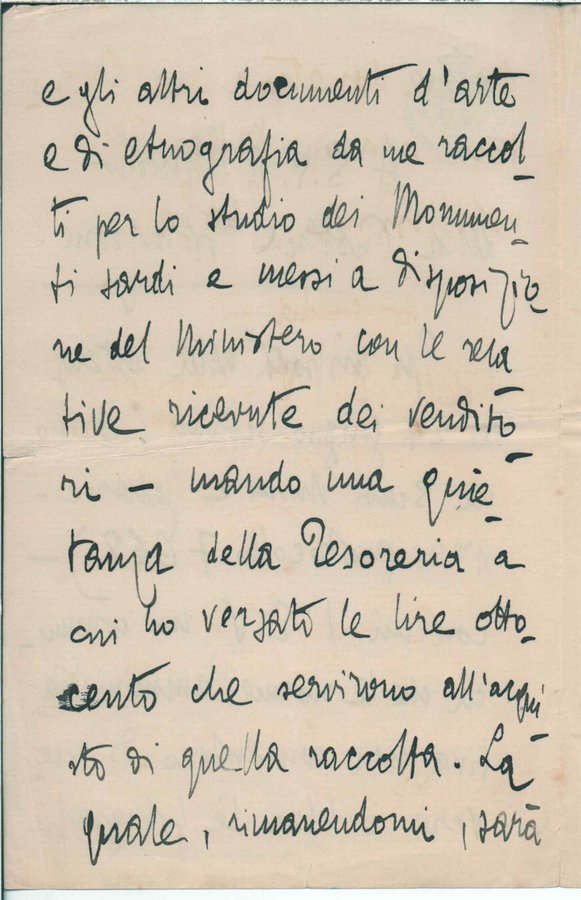 e gli altri documenti d'arte
e di etnografia da me raccol-
ti per lo studio dei Monumen-
ti sardi e messi a disposizio-
ne del Ministero con le rela-
tive ricevute dei vendito-
ri — mando una quie-
tanza della Tesoreria a
cui ho versato le lire otto-
cento che servirono all'acqui-
sto di quella raccolta. La
quale, rimanendomi, sarà